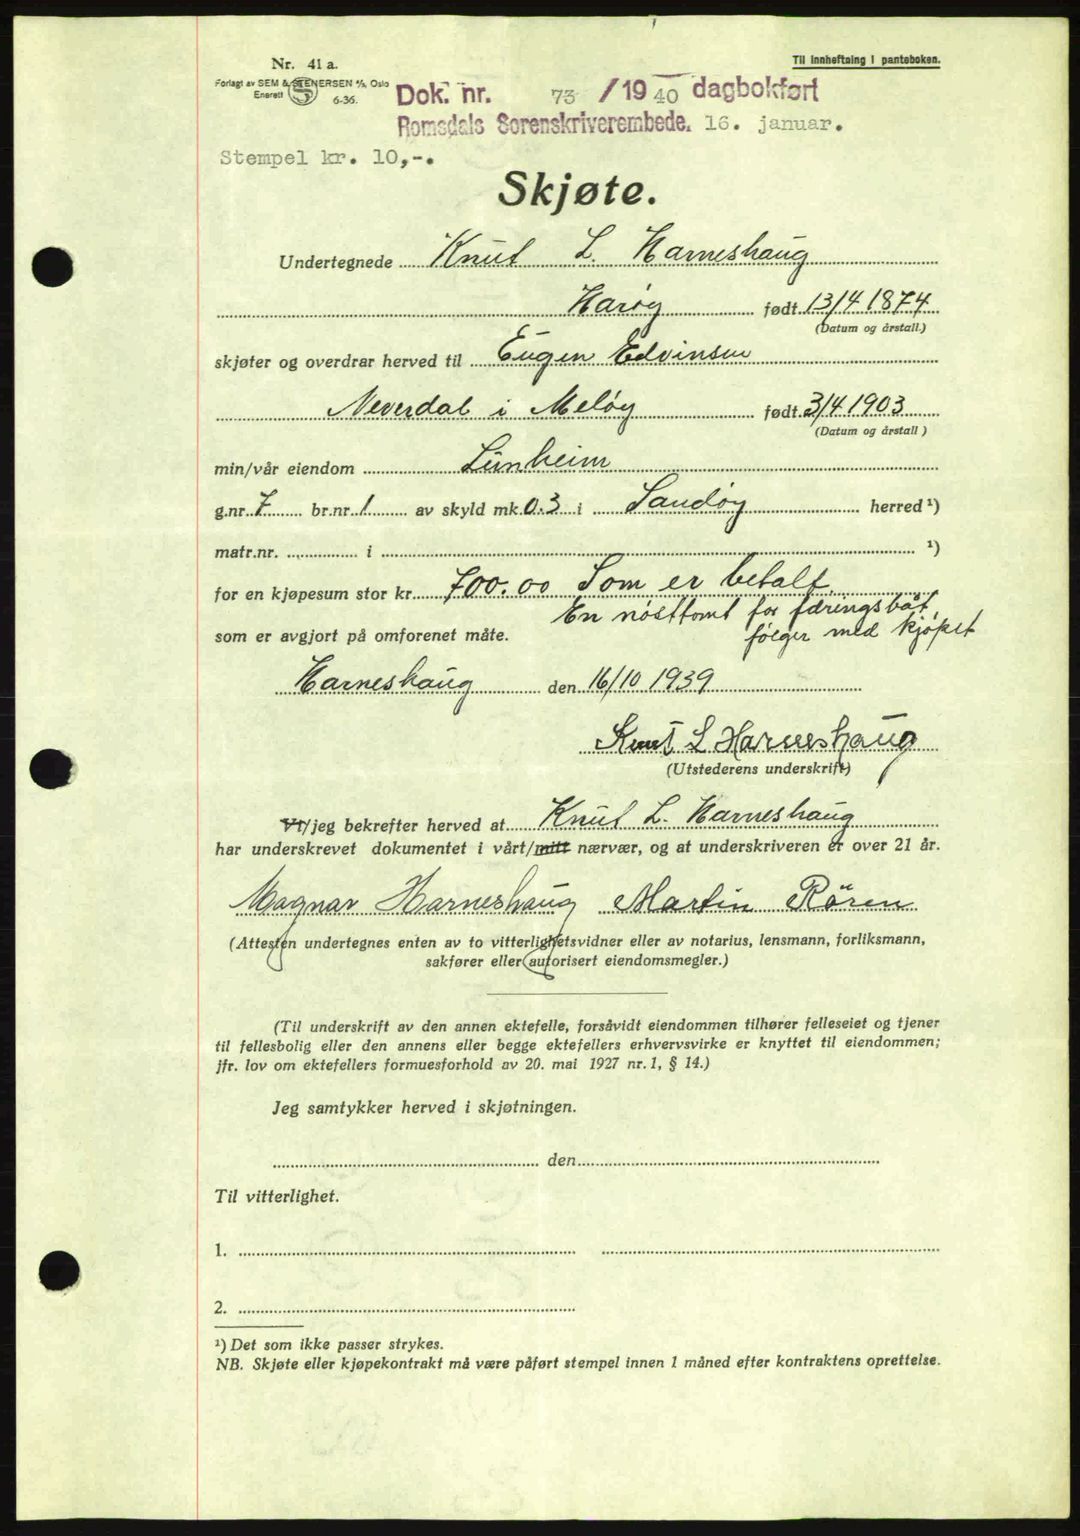 Nr. 41 a.
Til innheftning i panteboken.
Forlagt av SEM & STENERSEN A/S, Oslo
Enerett 6-36.
Dok. nr. 73 / 19 40 dagbokført
Romsdals Sorenskriverembede. 16. januar.
Stempel kr. 10,-.
Skjøte.
Undertegnede Knut L. Harneshaug
Harøy født 13/4 1874
(Datum og årstall.)
skjøter og overdrar herved til Eugen Edvinsen
Neverdal i Meløy født 3/4 1903
(Datum og årstall)
min/vår eiendom Lünheim
g.nr. 7 br.nr. 1 av skyld mk. 0.3 i Sandøy herred ¹)
matr.nr. i ¹)
for en kjøpesum stor kr. 700.00 Som er betalt.
En nøsttomt for færingsbåt
som er avgjort på omforenet måte. følger med kjøpet
Harneshaug den 16/10 1939
Knut L Harneshaug
(Utstederens underskrift)
Vi/jeg bekrefter herved at Knut L. Harneshaug
har underskrevet dokumentet i vårt/mitt nærvær, og at underskriveren er over 21 år.
Magnar Harneshaug Martin Rören
(Attesten undertegnes enten av to vitterlighetsvidner eller av notarius, lensmann, forliksmann,
sakfører eller autorisert eiendomsmegler.)
(Til underskrift av den annen ektefelle, forsåvidt eiendommen tilhører felleseiet og tjener
til fellesbolig eller den annens eller begge ektefellers erhvervsvirke er knyttet til eiendommen;
jfr. lov om ektefellers formuesforhold av 20. mai 1927 nr. 1, § 14.)
Jeg samtykker herved i skjøtningen.
den
Til vitterlighet.
1.
2.
¹) Det som ikke passer strykes.
NB. Skjøte eller kjøpekontrakt må være påført stempel innen 1 måned efter kontraktens oprettelse.